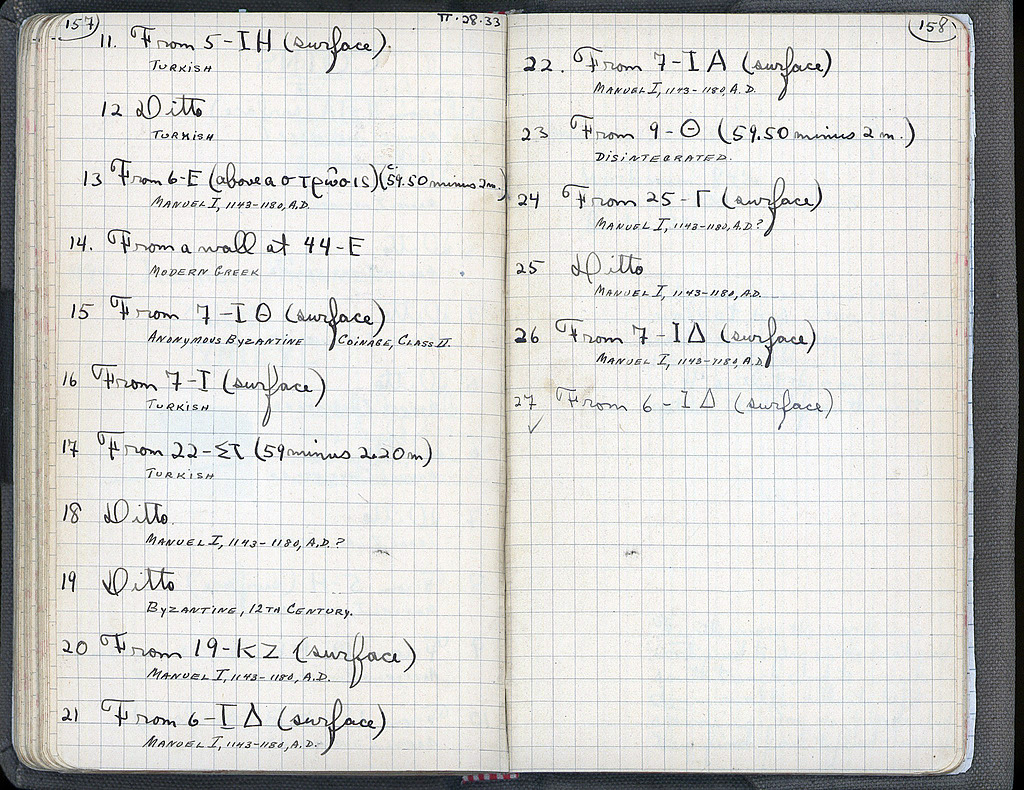 157
π·28·33
11. From 5-ΙΗ (surface).
Turkish
12 Ditto
Turkish
13 From 6-Ε (above a στρῶσις) (c. 59.50 minus 2m.)
Manuel I, 1143-1180, A.D.
14. From a wall at 44-Ε
Modern Greek
15 From 7-ΙΘ (surface)
Anonymous Byzantine Coinage, Class II.
16 From 7-Ι (surface)
Turkish
17 From 22-Στ (59 minus 2.20m)
Turkish
18 Ditto.
Manuel I, 1143-1180, A.D.?
19 Ditto
Byzantine, 12th Century.
20 From 19-ΚΖ (surface)
Manuel I, 1143-1180, A.D.
21 From 6-ΙΔ (surface)
Manuel I, 1143-1180, A.D.
158
22. From 7-ΙΑ (surface)
Manuel I, 1143-1180, A.D.
23 From 9-Θ (59.50 minus 2m.)
Disintegrated.
24 From 25-Γ (surface)
Manuel I, 1143-1180, A.D.?
25 Ditto
Manuel I, 1143-1180, A.D.
26 From 7-ΙΔ (surface)
Manuel I, 1143-1180, A.D.
27 From 6-ΙΔ (surface)
✓